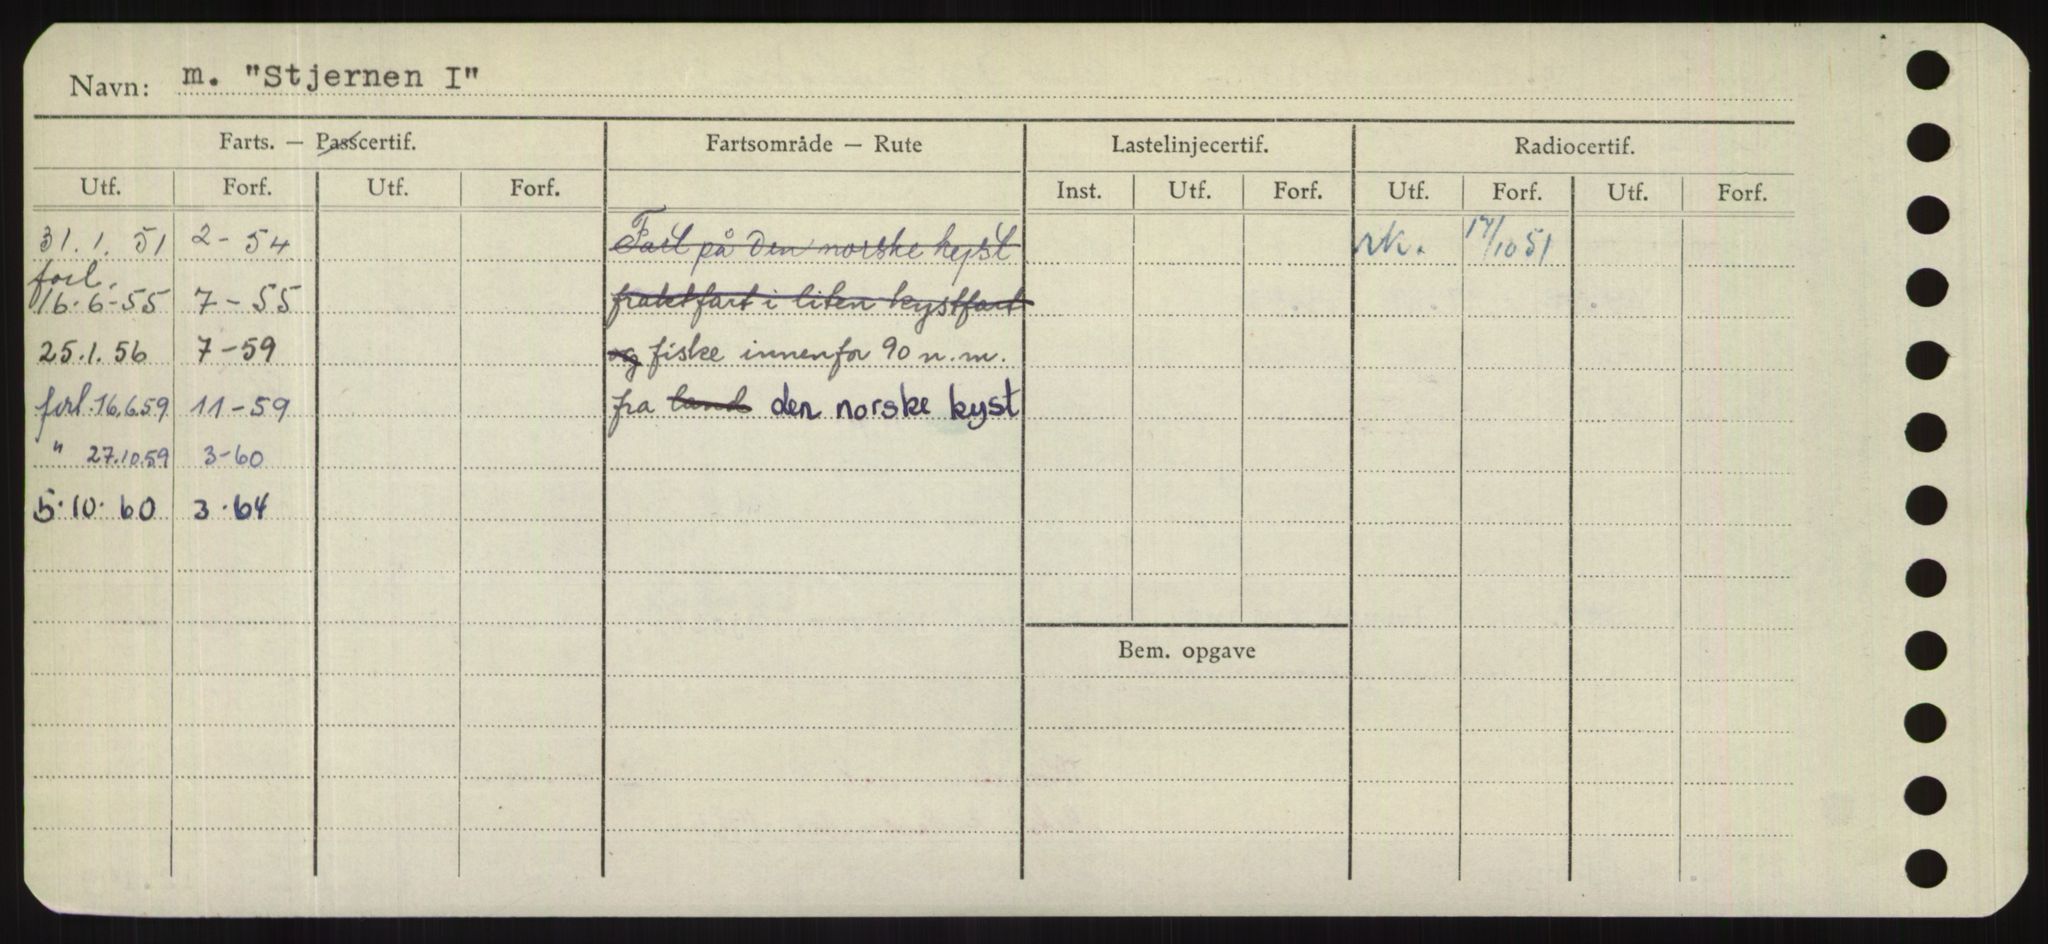 Navn: m. "Stjernen I"
Farts. — Passcertif. Fartsområde — Rute Lastelinjecertif. Radiocertif.
Utf. Forf. Utf. Forf. Inst. Utf. Forf. Utf. Forf. Utf. Forf.
31. 1. 51 2 - 54 Fart på den norske kyst rk. 17/10 51
forl.
16-6-55 7 - 55 fraktfart i liten kystfart
25.1. 56 7 - 59 og fiske innenfor 90 n.m.
forl. 16.6.59 11 - 59 fra land den norske kyst
" 27.10.59 3-60
5.10.60 3.64
Bem. opgave